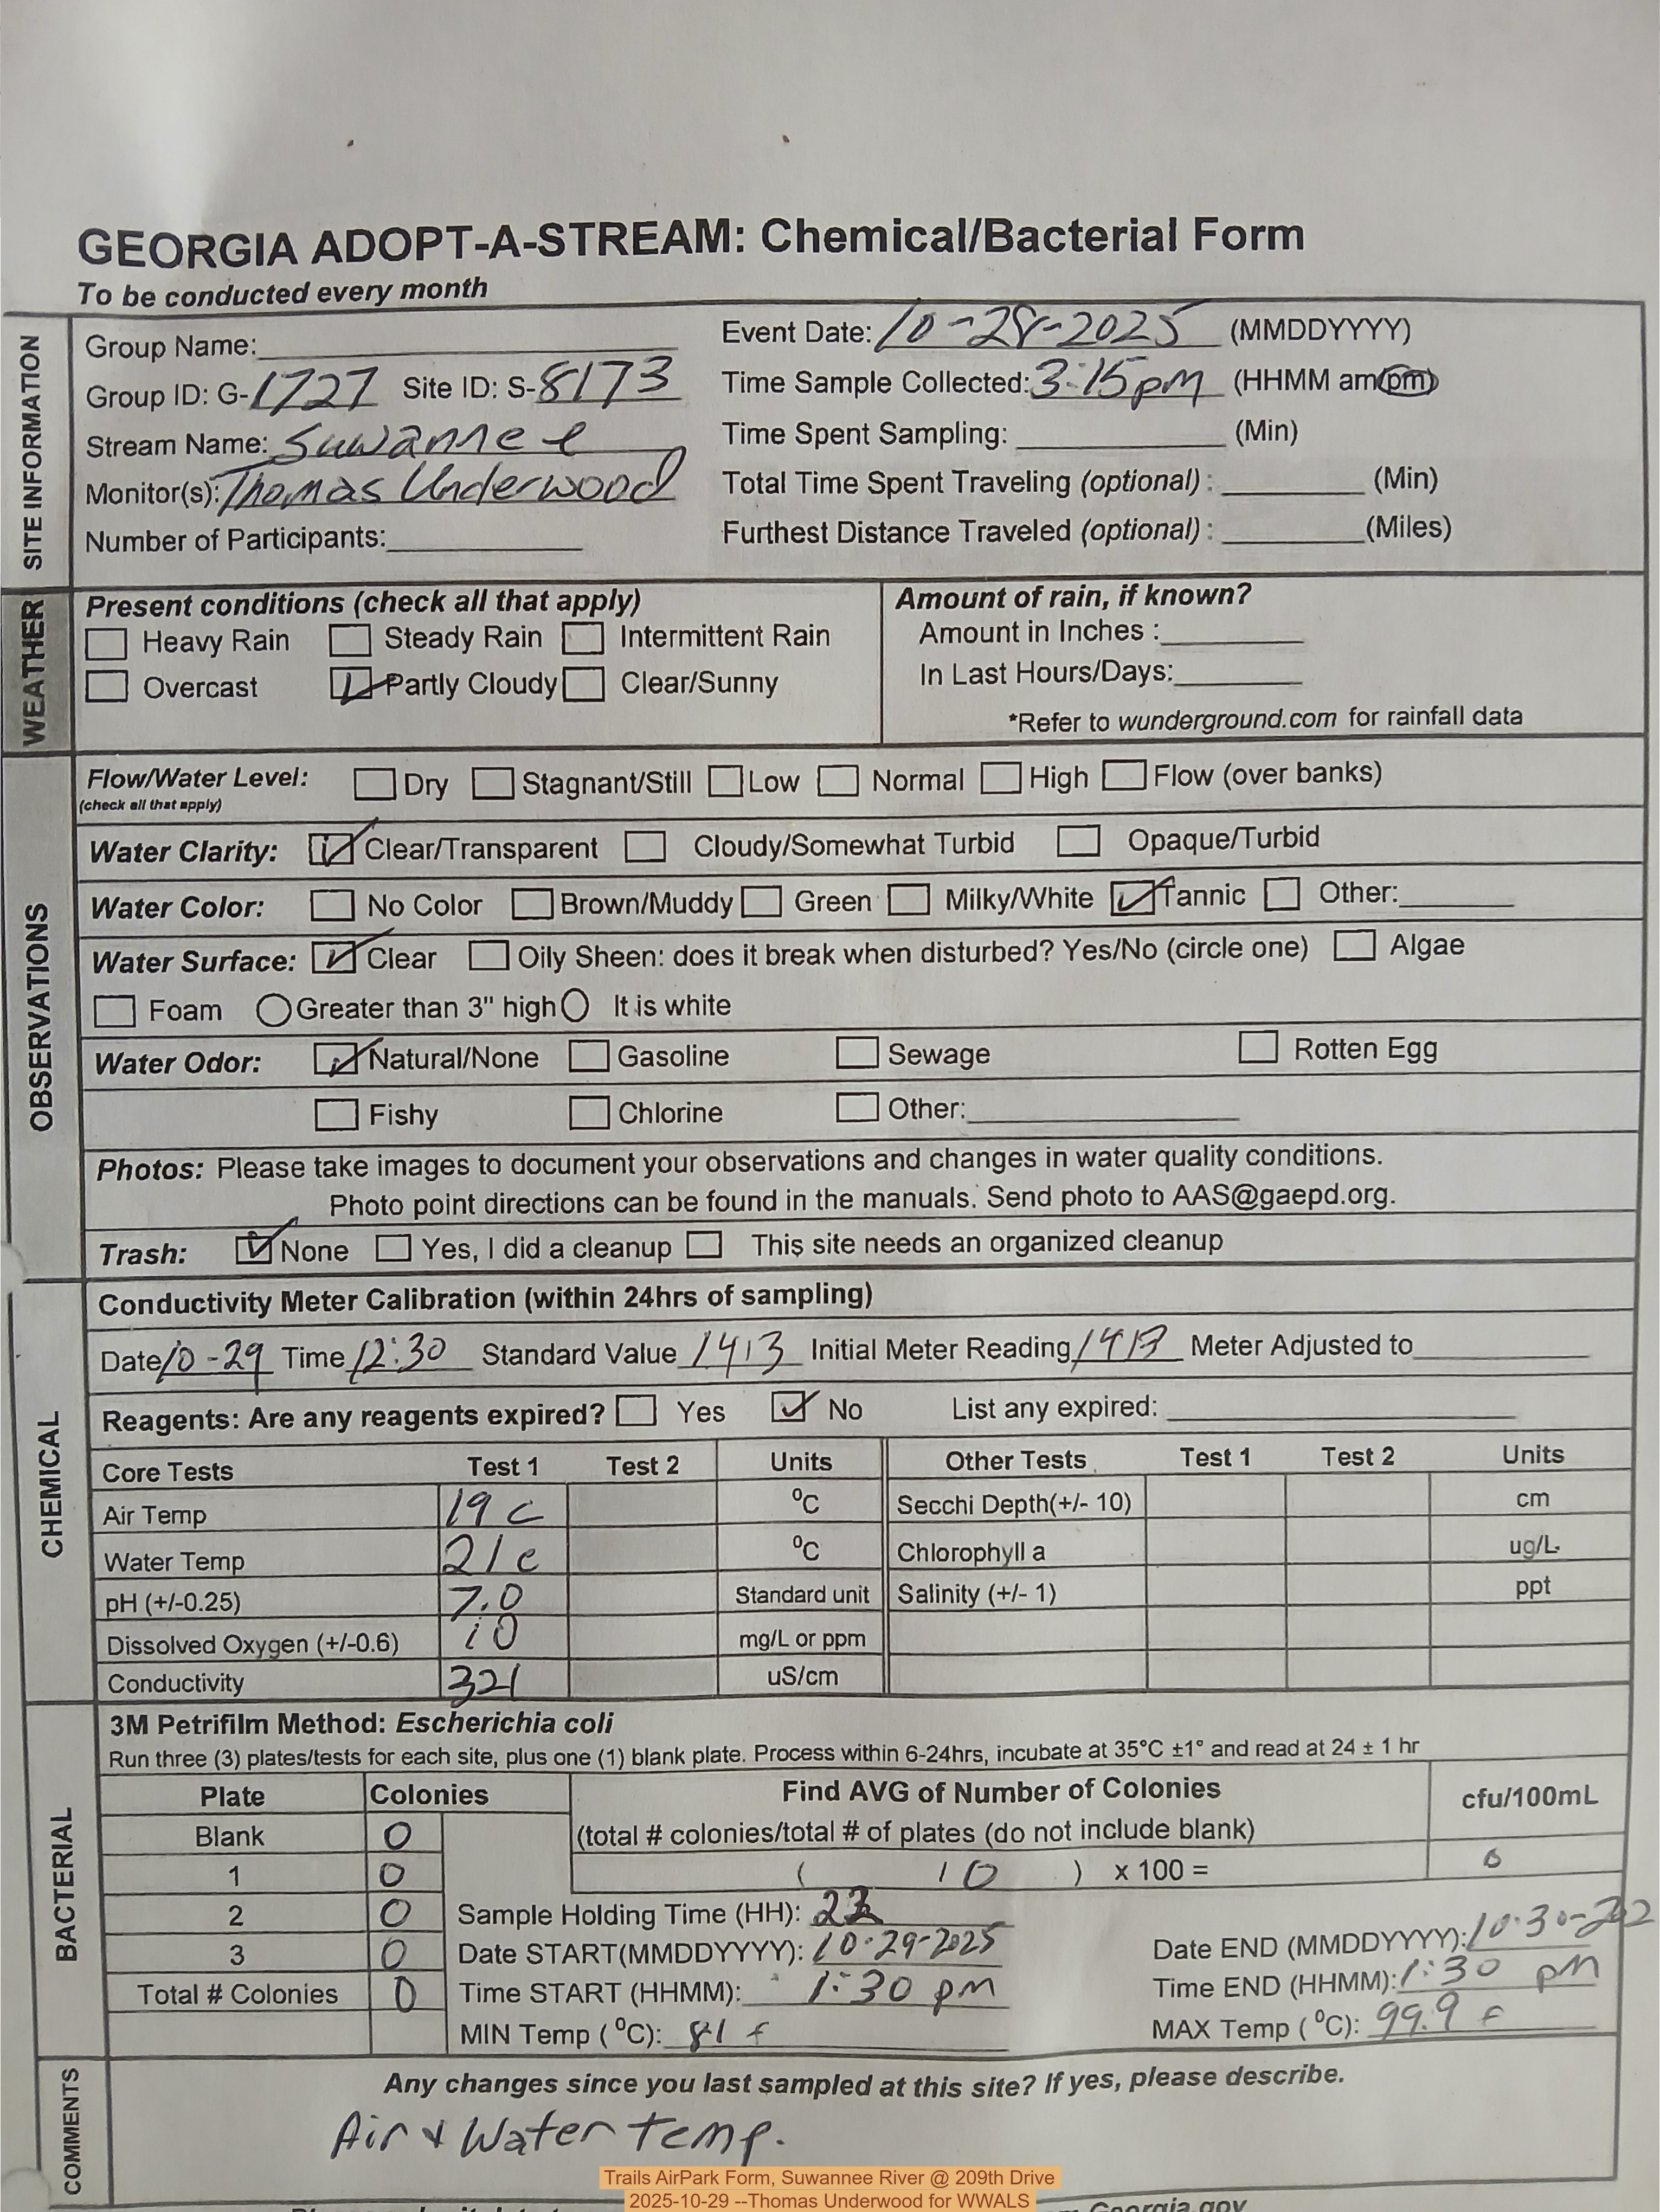 GEORGIA ADOPT-A-STREAM: Chemical/Bacterial Form
To be conducted every month
SITE INFORMATION
Group Name:
Group ID: G-1727 Site ID: S-8173
Stream Name: Suwannee
Monitor(s): Thomas Underwood
Number of Participants:
Event Date: 10-28-2025 (MMDDYYYY)
Time Sample Collected: 3:15pm (HHMM am/pm)
Time Spent Sampling: (Min)
Total Time Spent Traveling (optional) : (Min)
Furthest Distance Traveled (optional) : (Miles)
WEATHER
Present conditions (check all that apply)
Heavy Rain Steady Rain Intermittent Rain
Overcast Partly Cloudy Clear/Sunny
Amount of rain, if known?
Amount in Inches :
In Last Hours/Days:
*Refer to wunderground.com for rainfall data
OBSERVATIONS
Flow/Water Level: Dry Stagnant/Still Low Normal High Flow (over banks)
(check all that apply)
Water Clarity: Clear/Transparent Cloudy/Somewhat Turbid Opaque/Turbid
Water Color: No Color Brown/Muddy Green Milky/White Tannic Other:
Water Surface: Clear Oily Sheen: does it break when disturbed? Yes/No (circle one) Algae
Foam Greater than 3" high It is white
Water Odor: Natural/None Gasoline Sewage Rotten Egg
Fishy Chlorine Other:
Photos: Please take images to document your observations and changes in water quality conditions.
Photo point directions can be found in the manuals. Send photo to AAS@gaepd.org.
Trash: None Yes, I did a cleanup This site needs an organized cleanup
CHEMICAL
Conductivity Meter Calibration (within 24hrs of sampling)
Date 10-29 Time 12:30 Standard Value 1413 Initial Meter Reading 1413 Meter Adjusted to
Reagents: Are any reagents expired? Yes No List any expired:
Core Tests Test 1 Test 2 Units Other Tests Test 1 Test 2 Units
Air Temp 19 c °C Secchi Depth(+/- 10) cm
Water Temp 21 c °C Chlorophyll a ug/L
pH (+/-0.25) 7.0 Standard unit Salinity (+/- 1) ppt
Dissolved Oxygen (+/-0.6) 10 mg/L or ppm
Conductivity 321 uS/cm
BACTERIAL
3M Petrifilm Method: Escherichia coli
Run three (3) plates/tests for each site, plus one (1) blank plate. Process within 6-24hrs, incubate at 35°C ±1° and read at 24 ± 1 hr
Plate Colonies Find AVG of Number of Colonies cfu/100mL
Blank 0 (total # colonies/total # of plates (do not include blank)
1 0 ( 10 ) x 100 = 0
2 0 Sample Holding Time (HH):
3 0 Date START(MMDDYYYY): 10-29-2025 Date END (MMDDYYYY):
Total # Colonies 0 Time START (HHMM): 1:30 pm Time END (HHMM): 1:30 pm
MIN Temp (°C): 81 f MAX Temp (°C): 99.9 f
COMMENTS
Any changes since you last sampled at this site? If yes, please describe.
Air & Water temp.
Trails AirPark Form, Suwannee River @ 209th Drive
2025-10-29 --Thomas Underwood for WWALS